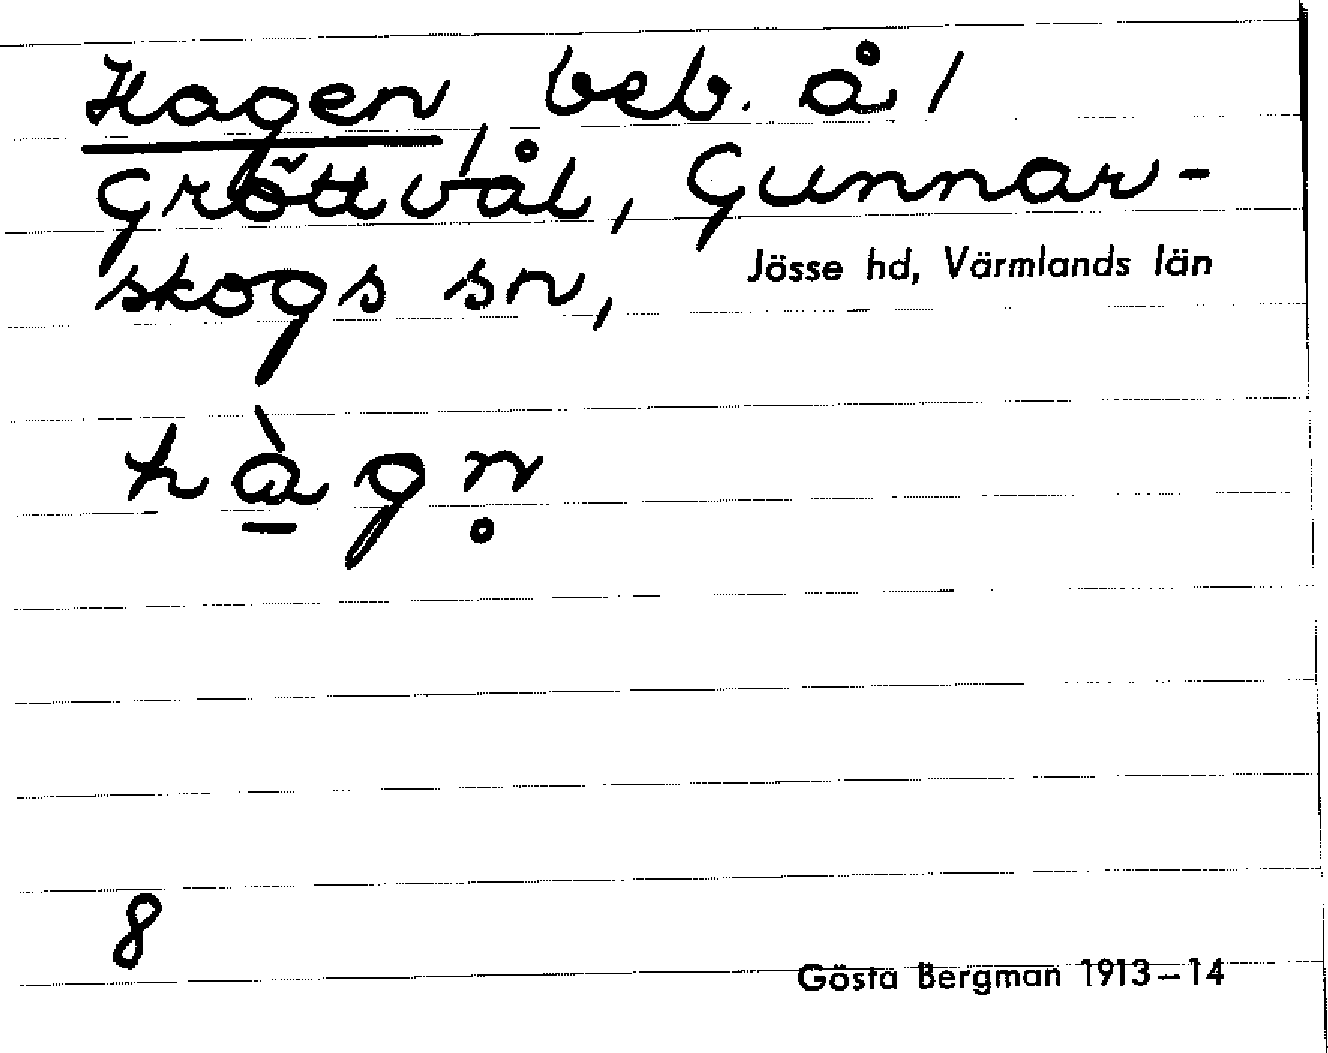 Hagen, beb. å 1
Gröttvål, Gunnar-
skogs sn, Jösse hd, Värmlands län
hà̱gn̥
8
Gösta Bergman 1913–14